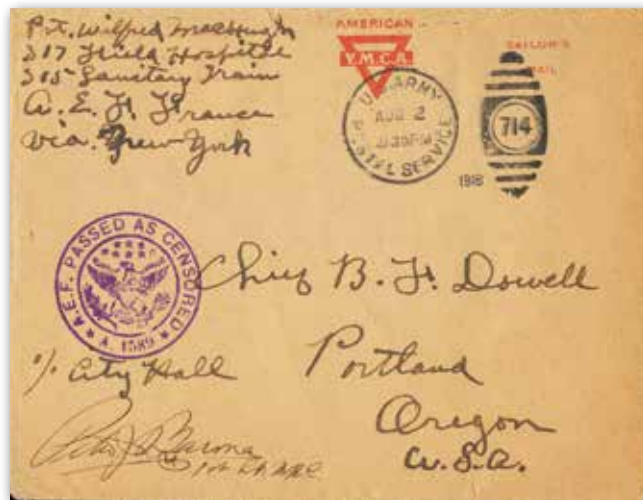 Pvt. Wilfred
317 Field Hospital
305 Sanitary Train
A. E. F. France
via. New York
AMERICAN
Y.M.C.A.
SAILOR'S
MAIL
U.S. ARMY
AUG 2
POSTAL SERVICE
714
1918
A.E.F. PASSED AS CENSORED
A 1589
Chief B. F. Dowell
% City Hall
Portland
Oregon
U.S.A.
1st Lt. M.R.C.